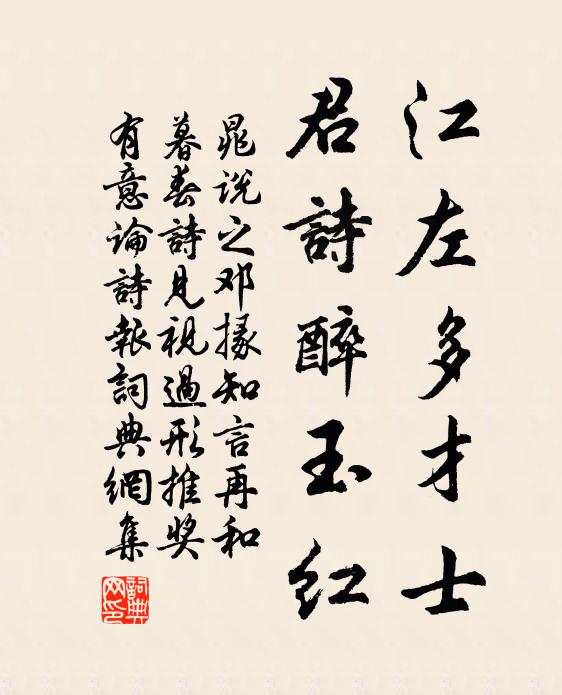 江左多才士
君詩醉玉紅
晁说之邓掾知言再和
暮春詩見視過形推奖
有意論詩報詞典網集
詞典
网印